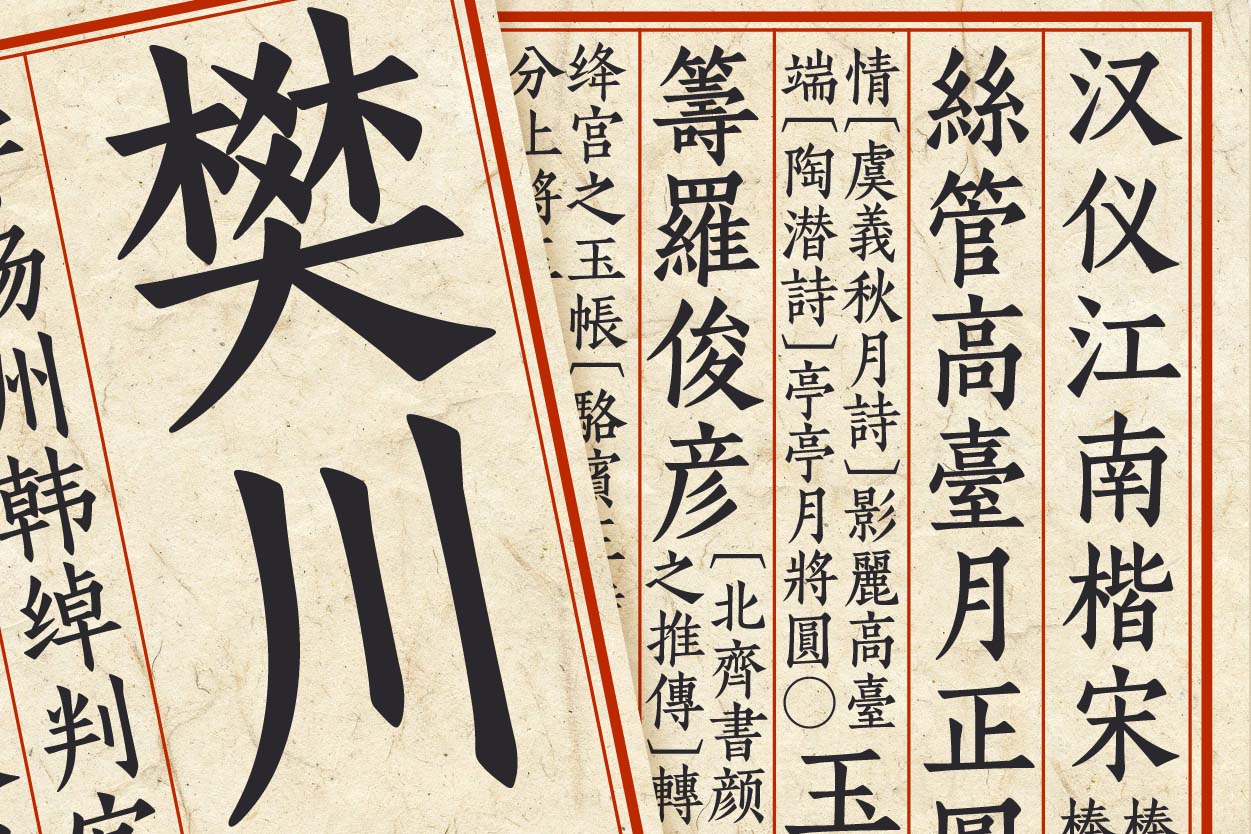 汉仪江南楷宋
絲管高臺月正圓
情[虞義秋月詩]影麗高臺
端[陶潜詩]亭亭月將圓〇
玉
籌羅俊彦
[北齊書颜
之推傳]轉
绛宫之玉帳[駱賓王
分上將
樊川
扬州韩绰判官